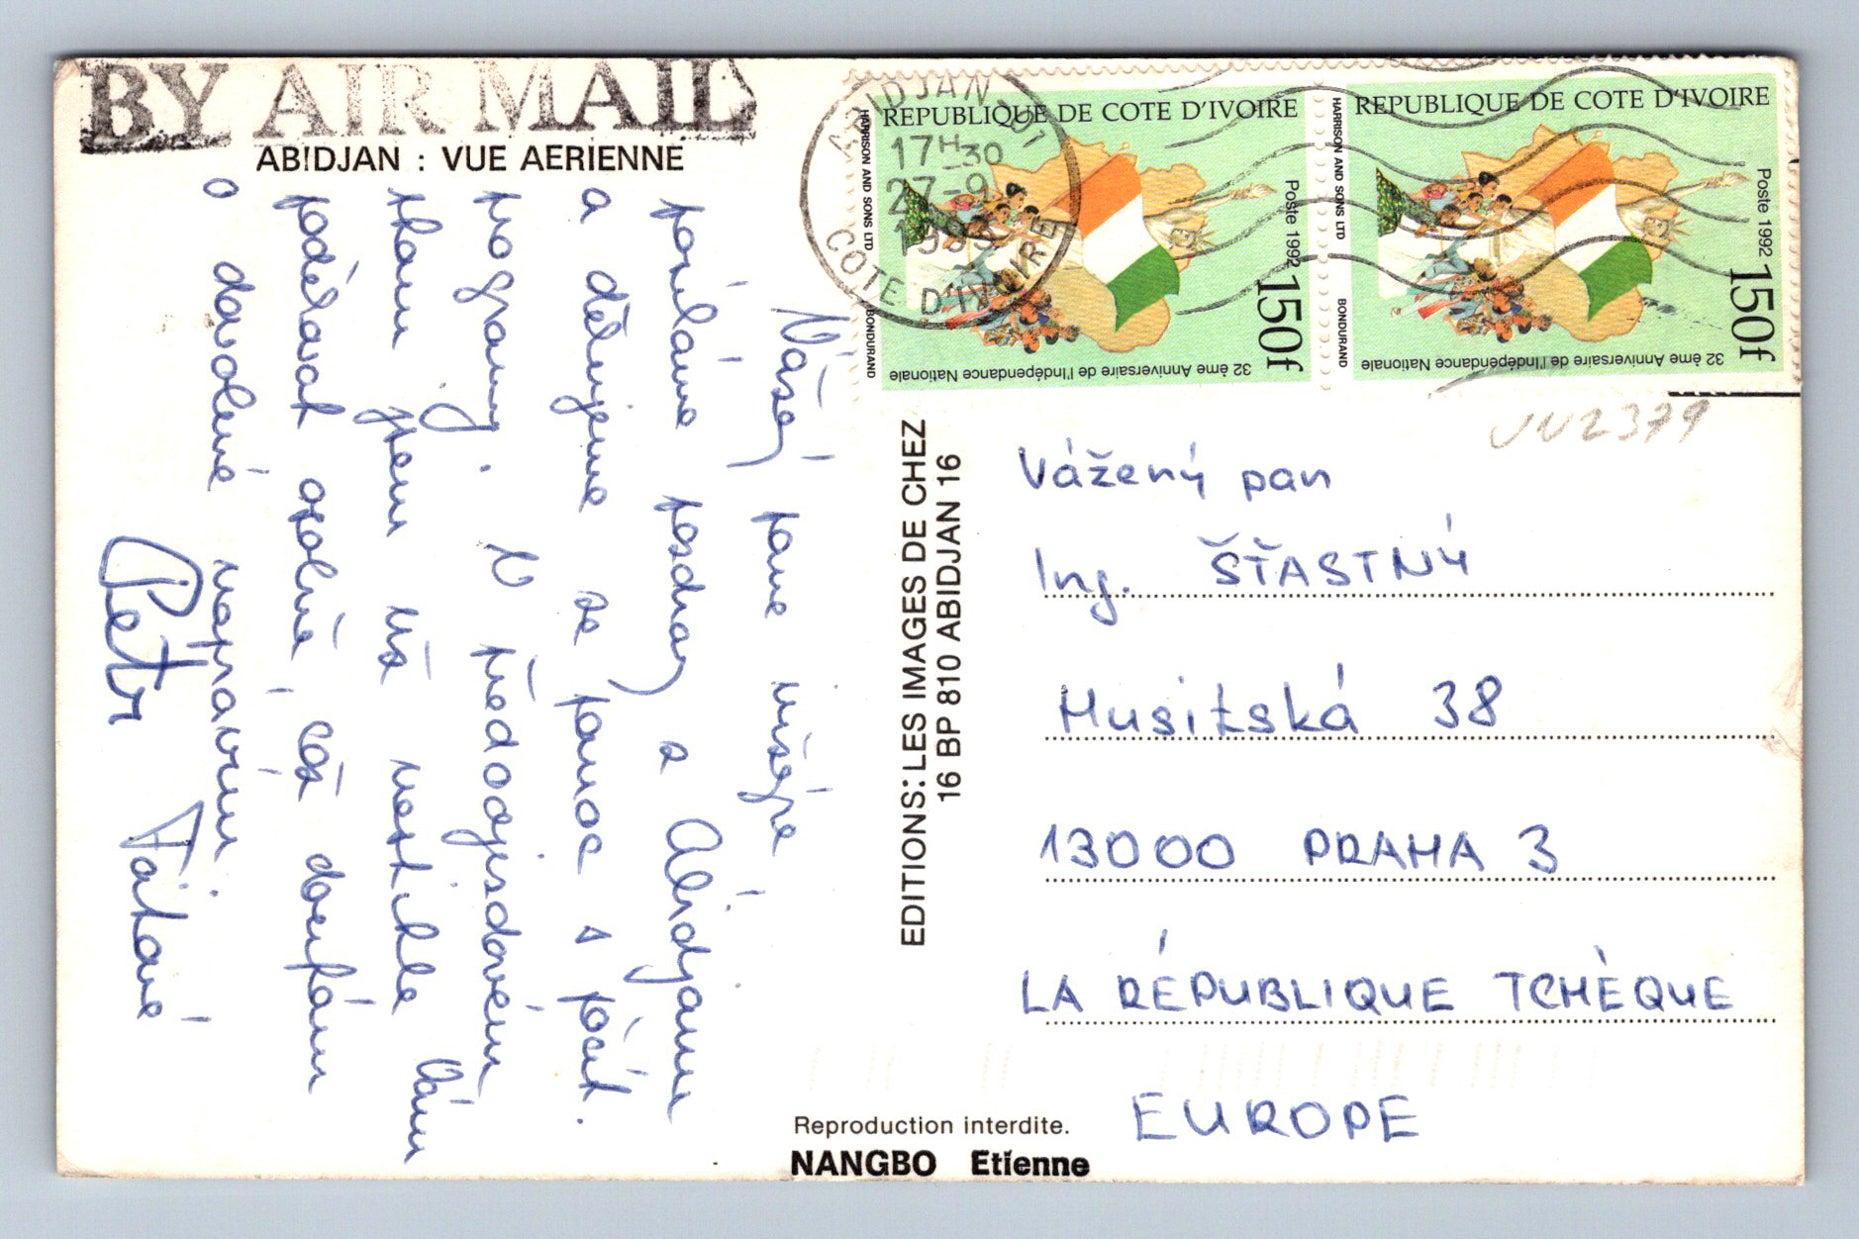 BY AIR MAIL
ABIDJAN : VUE AERIENNE
Vážený pane inženýre,
posíláme pozdrav z Abidjanu
a děkujeme za pomoc s
programy. V předodjezdovém
jsem už nestihla Vám
poděkovat osobně, což doufám
o dovolené napravím.
Petr Táňové
ABIDJAN 01
17H-30
27-9
COTE D'IVOIRE
REPUBLIQUE DE COTE D'IVOIRE
HARRISON AND SONS LTD
BONDURAND
Poste 1992
150f
32 ème Anniversaire de l'Indépendance Nationale
REPUBLIQUE DE COTE D'IVOIRE
HARRISON AND SONS LTD
BONDURAND
Poste 1992
150f
32 ème Anniversaire de l'Indépendance Nationale
EDITIONS: LES IMAGES DE CHEZ
16 BP 810 ABIDJAN 16
Vážený pan
Ing. ŠŤASTNÝ
Husitská 38
13000 PRAHA 3
LA RÉPUBLIQUE TCHÈQUE
EUROPE
Reproduction interdite.
NANGBO Etienne